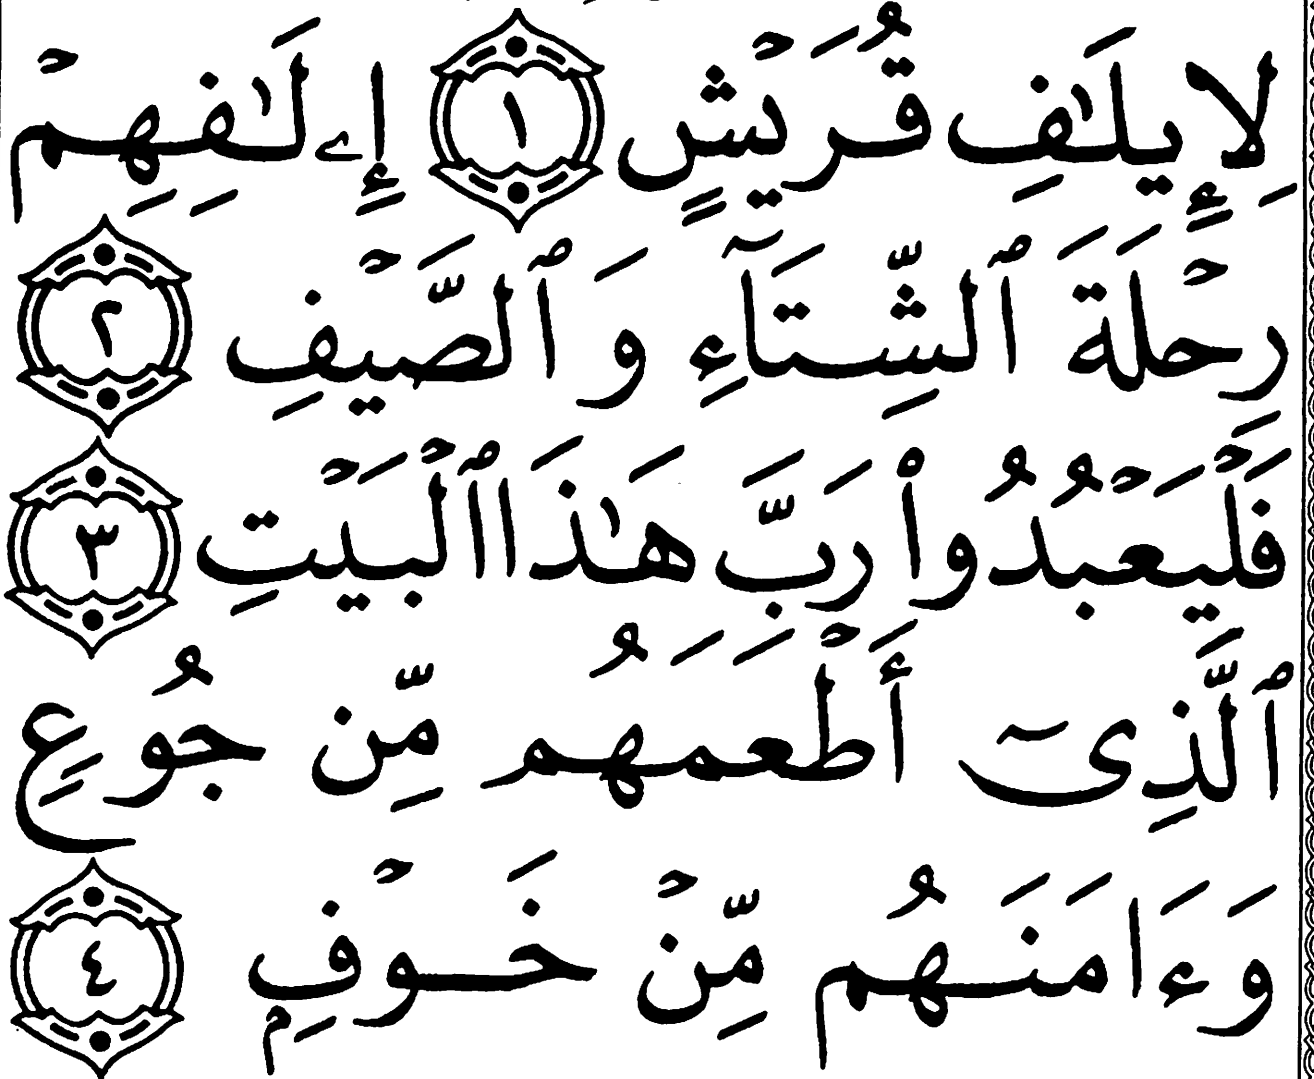 لِإِيلَٰفِ قُرَيْشٍ ١ إِۦلَٰفِهِمْ
رِحْلَةَ ٱلشِّتَآءِ وَٱلصَّيْفِ ٢
فَلْيَعْبُدُوا۟ رَبَّ هَٰذَا ٱلْبَيْتِ ٣
ٱلَّذِىٓ أَطْعَمَهُم مِّن جُوعٍ
وَءَامَنَهُم مِّنْ خَوْفٍۭ ٤